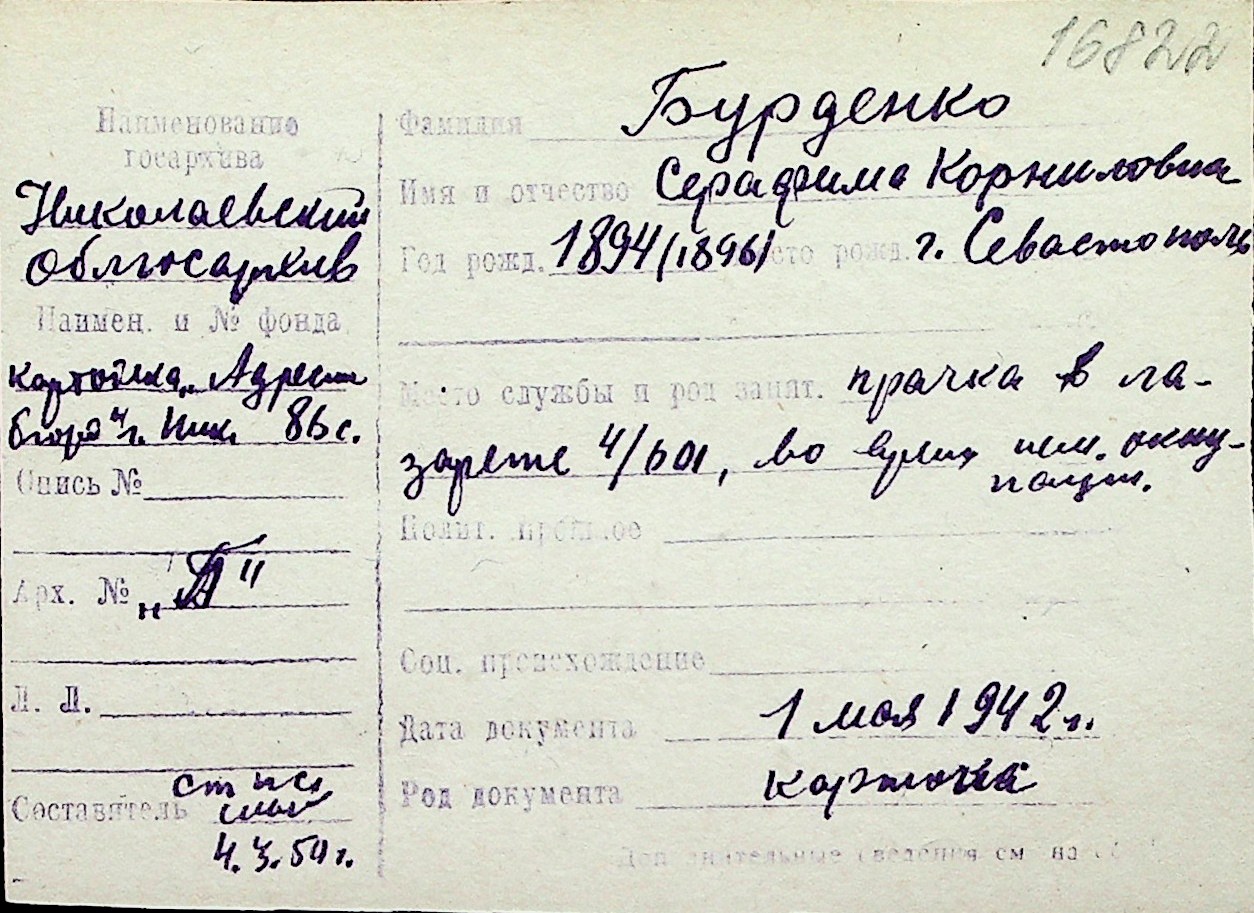 16822
Наименование
госархива
Николаевский
облгосархив
Наимен. и № фонда
картотека „Адресн
бюро" г. Ник. 86 с.
Опись №
Арх. № „Б"
Л. Л.
Составитель
4.3.50 г.
Фамилия Бурденко
Имя и отчество Серафима Корниловна
Год рожд. 1894 (1896) место рожд. г. Севастополь
Место службы и род занят. прачка в ла-
зарете 4/601, во время нем. окку-
пации.
Полит. прошлое
Соц. происхождение
Дата документа 1 мая 1942 г.
Род документа карточка
Дополнительные сведения см на об